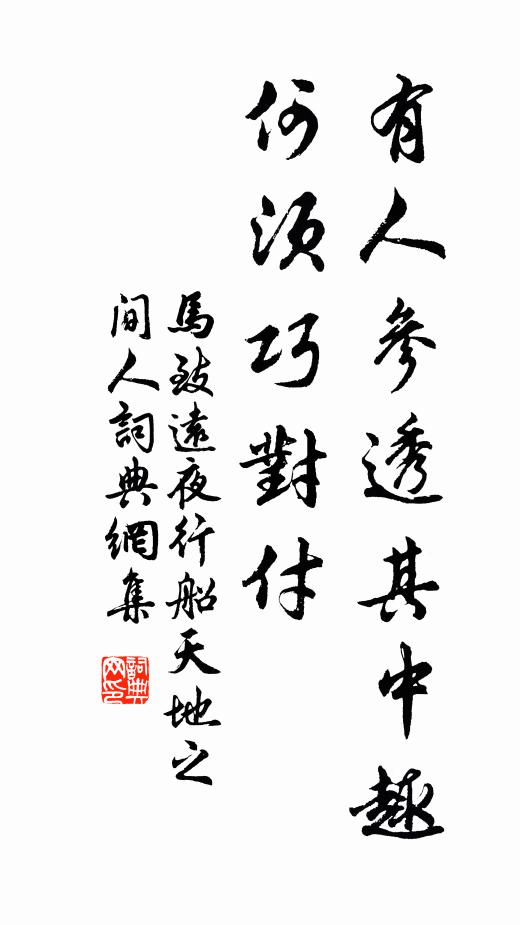 有人參透其中趣
何須巧對付
馬致遠夜行船天地之
間人詞典網集
詞典
网印